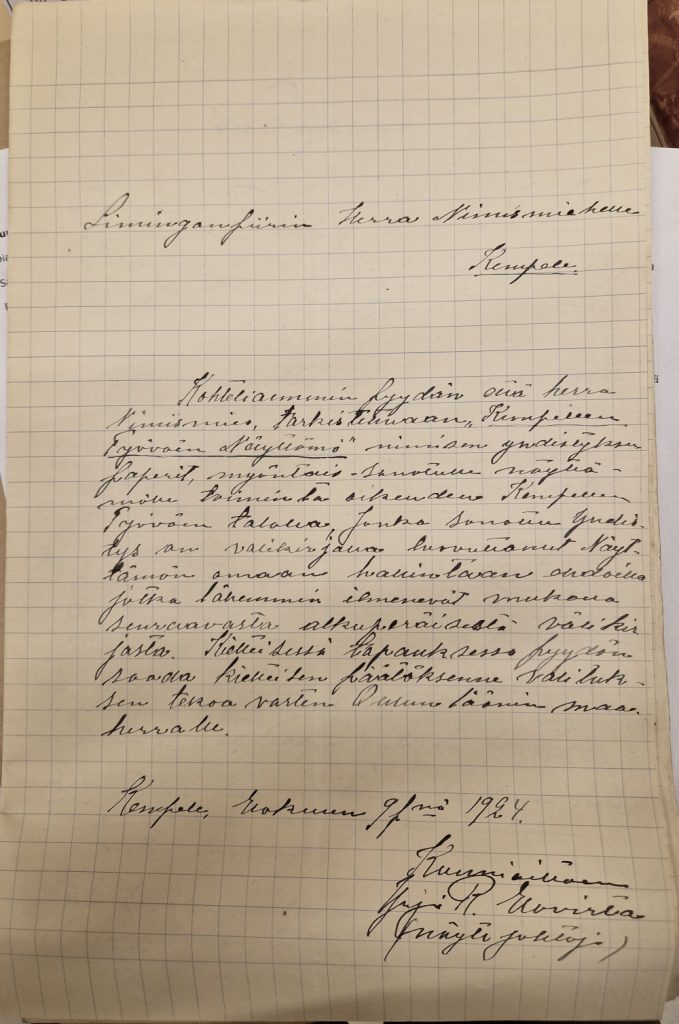 Limingan piirin Herra Nimismiehelle
Kempele.
Kohteliaemmin pyydän että herra
Nimismies, tarkistettuaan „Kempeleen
Työväen Näyttämö" nimisen yhdistyksen
paperit, myöntäis sanotulle näyttä-
mölle toiminta oikeuden Kempeleen
Työväen talolla, jonka sanottu Yhdis-
tys on välikirjana luovuttanut Näyt-
tämön omaan hallintaan ehdoilla
jotka lähemmin ilmenevät mukana
seuraavasta alkuperäisestä välikir
jasta. Kielteisessä tapauksessa pyydän
saada kielteisen päätöksenne valituk-
sen tekoa varten Oulun läänin maa-
herralle.
Kempele, Elokuun 9 p:nä 1924.
Kunnioittaen
R. Elovirta
(näyt. johtaja)